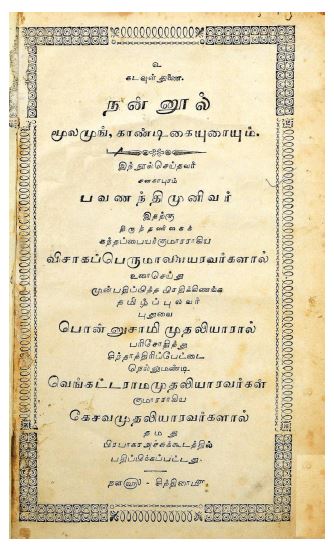 உ
கடவுள் துணை.
நன்னூல்
மூலமுங், காண்டிகையுரையும்.
இந்நூல்செய்தவர்
சனகாபுரம்
பவணந்திமுனிவர்
இதற்கு
திருத்தணிகைக்
கந்தப்பையர்குமாரராகிய
விசாகப்பெருமாளையரவர்களால்
உரைசெய்து
முன்பதிப்பித்த பிரதிக்கிணங்க
தமிழ்ப்புலவர்
புதுவை
பொன்னுசாமி முதலியாரால்
பரிசோதித்து
சிந்தாத்திரிப்பேட்டை
நெல்லுமண்டி
வெங்கட்டராமமுதலியாரவர்கள்
குமாரராகிய
கேசவமுதலியாரவர்களால்
தமது
பிரபாகரஅச்சுக்கூடத்தில்
பதிப்பிக்கப்பட்டது.